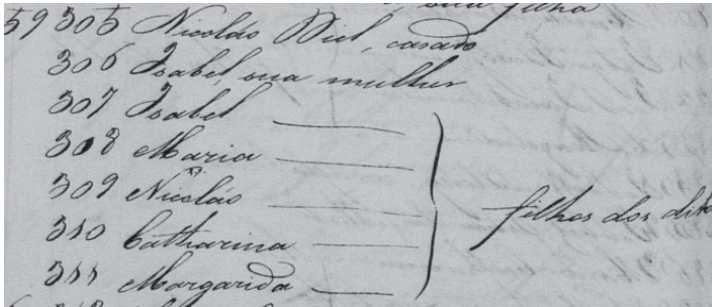 , sua filha
59 305 Nicoláo Diel, casado
306 Isabel, sua mulher
307 Isabel
308 Maria
309 Nicoláo
310 Catharina
311 Margarida
filhos dos dito